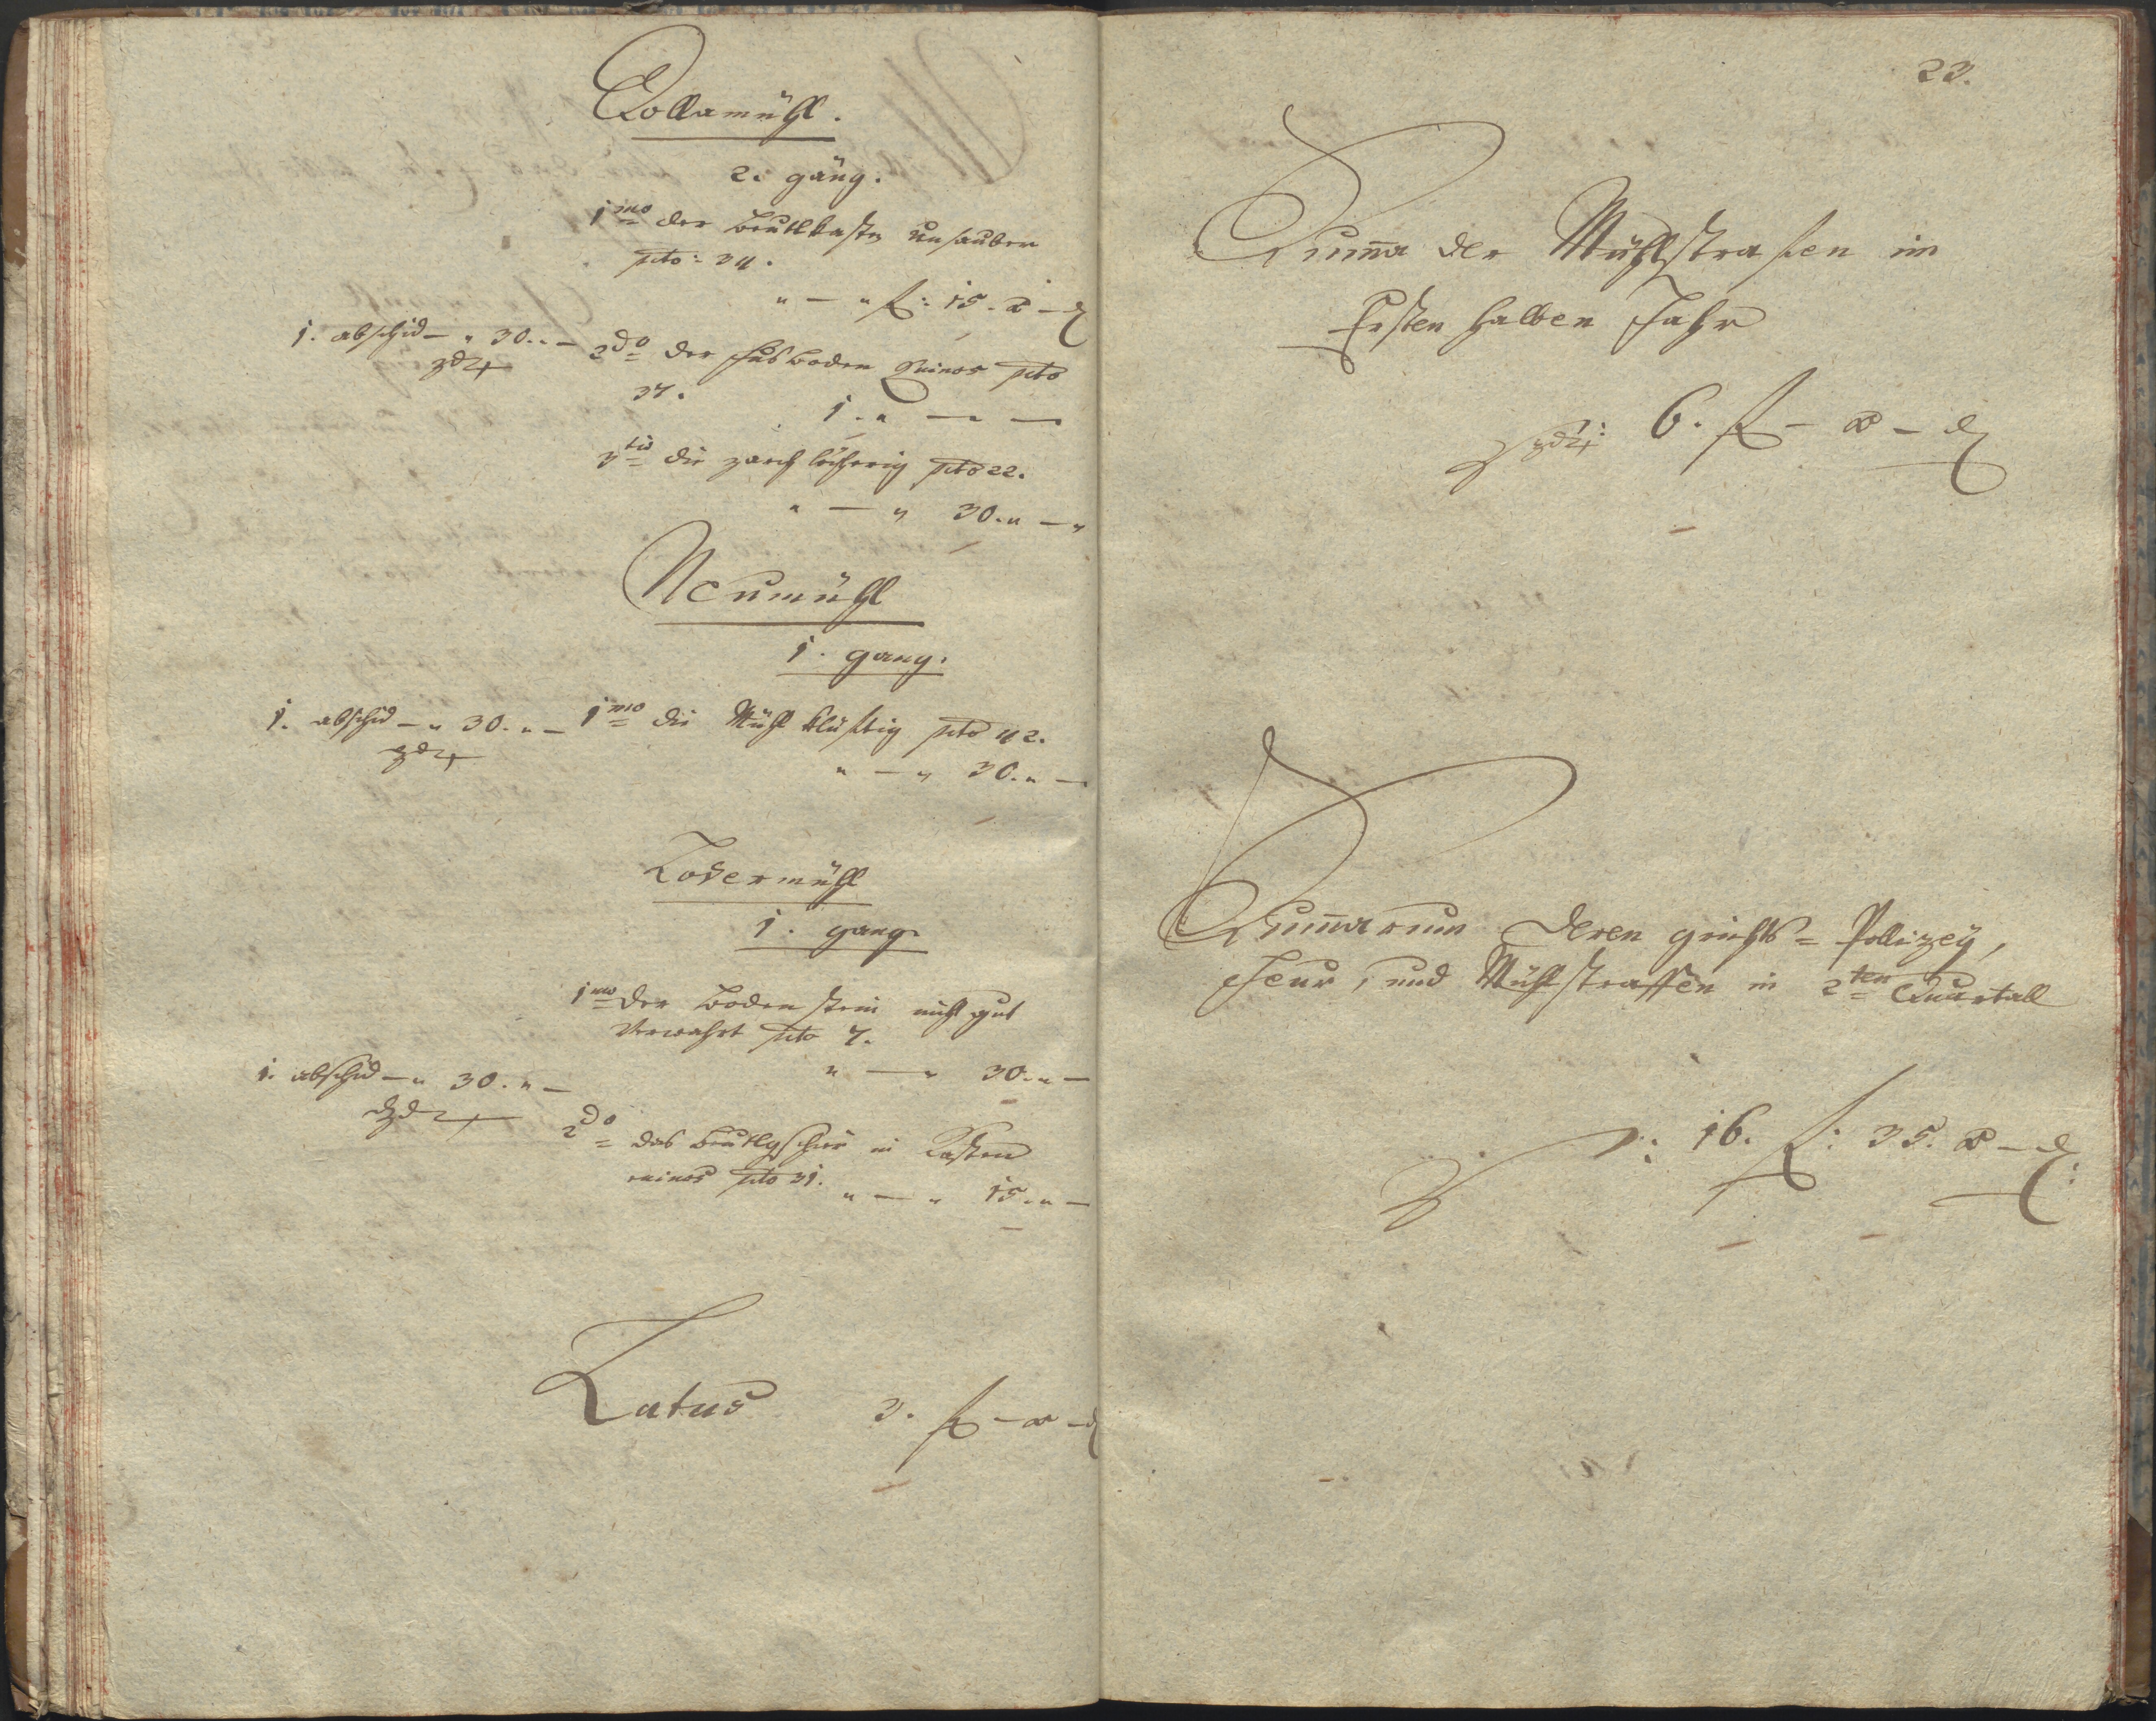 Collamühl.
2. gäng.
1mo der beutlkasten unsauber
pcto: 34.
" — " f: 15. x — d
1. abschid — " 30. " —
2do der fusboden ruinos pcto
37.
1. " — —
3tio die zarch löcherig pcto 22.
" — " 30. " — "
Neumühl
1. gang.
1. abschid — " 30. " —
1mo die Mühl klüftig pcto 42.
" — " 30. " —
Lodermühl
1. gang
1mo der boden stein nicht gut
verwahrt pcto 7.
" — " 30. " —
1. abschid — " 30. " —
2do das beutlgschier in Kasten
ruinos pcto 31.
" — " 15. " —
Latus 3. f — x — d
23.
Summa der Mühlstrafen im
Ersten halben Jahr
6. f — x — d
Summarum deren grichts= Pollizey,
Feur, und Mühlstraffen in 2ten Quartall
16. f: 35. x — d